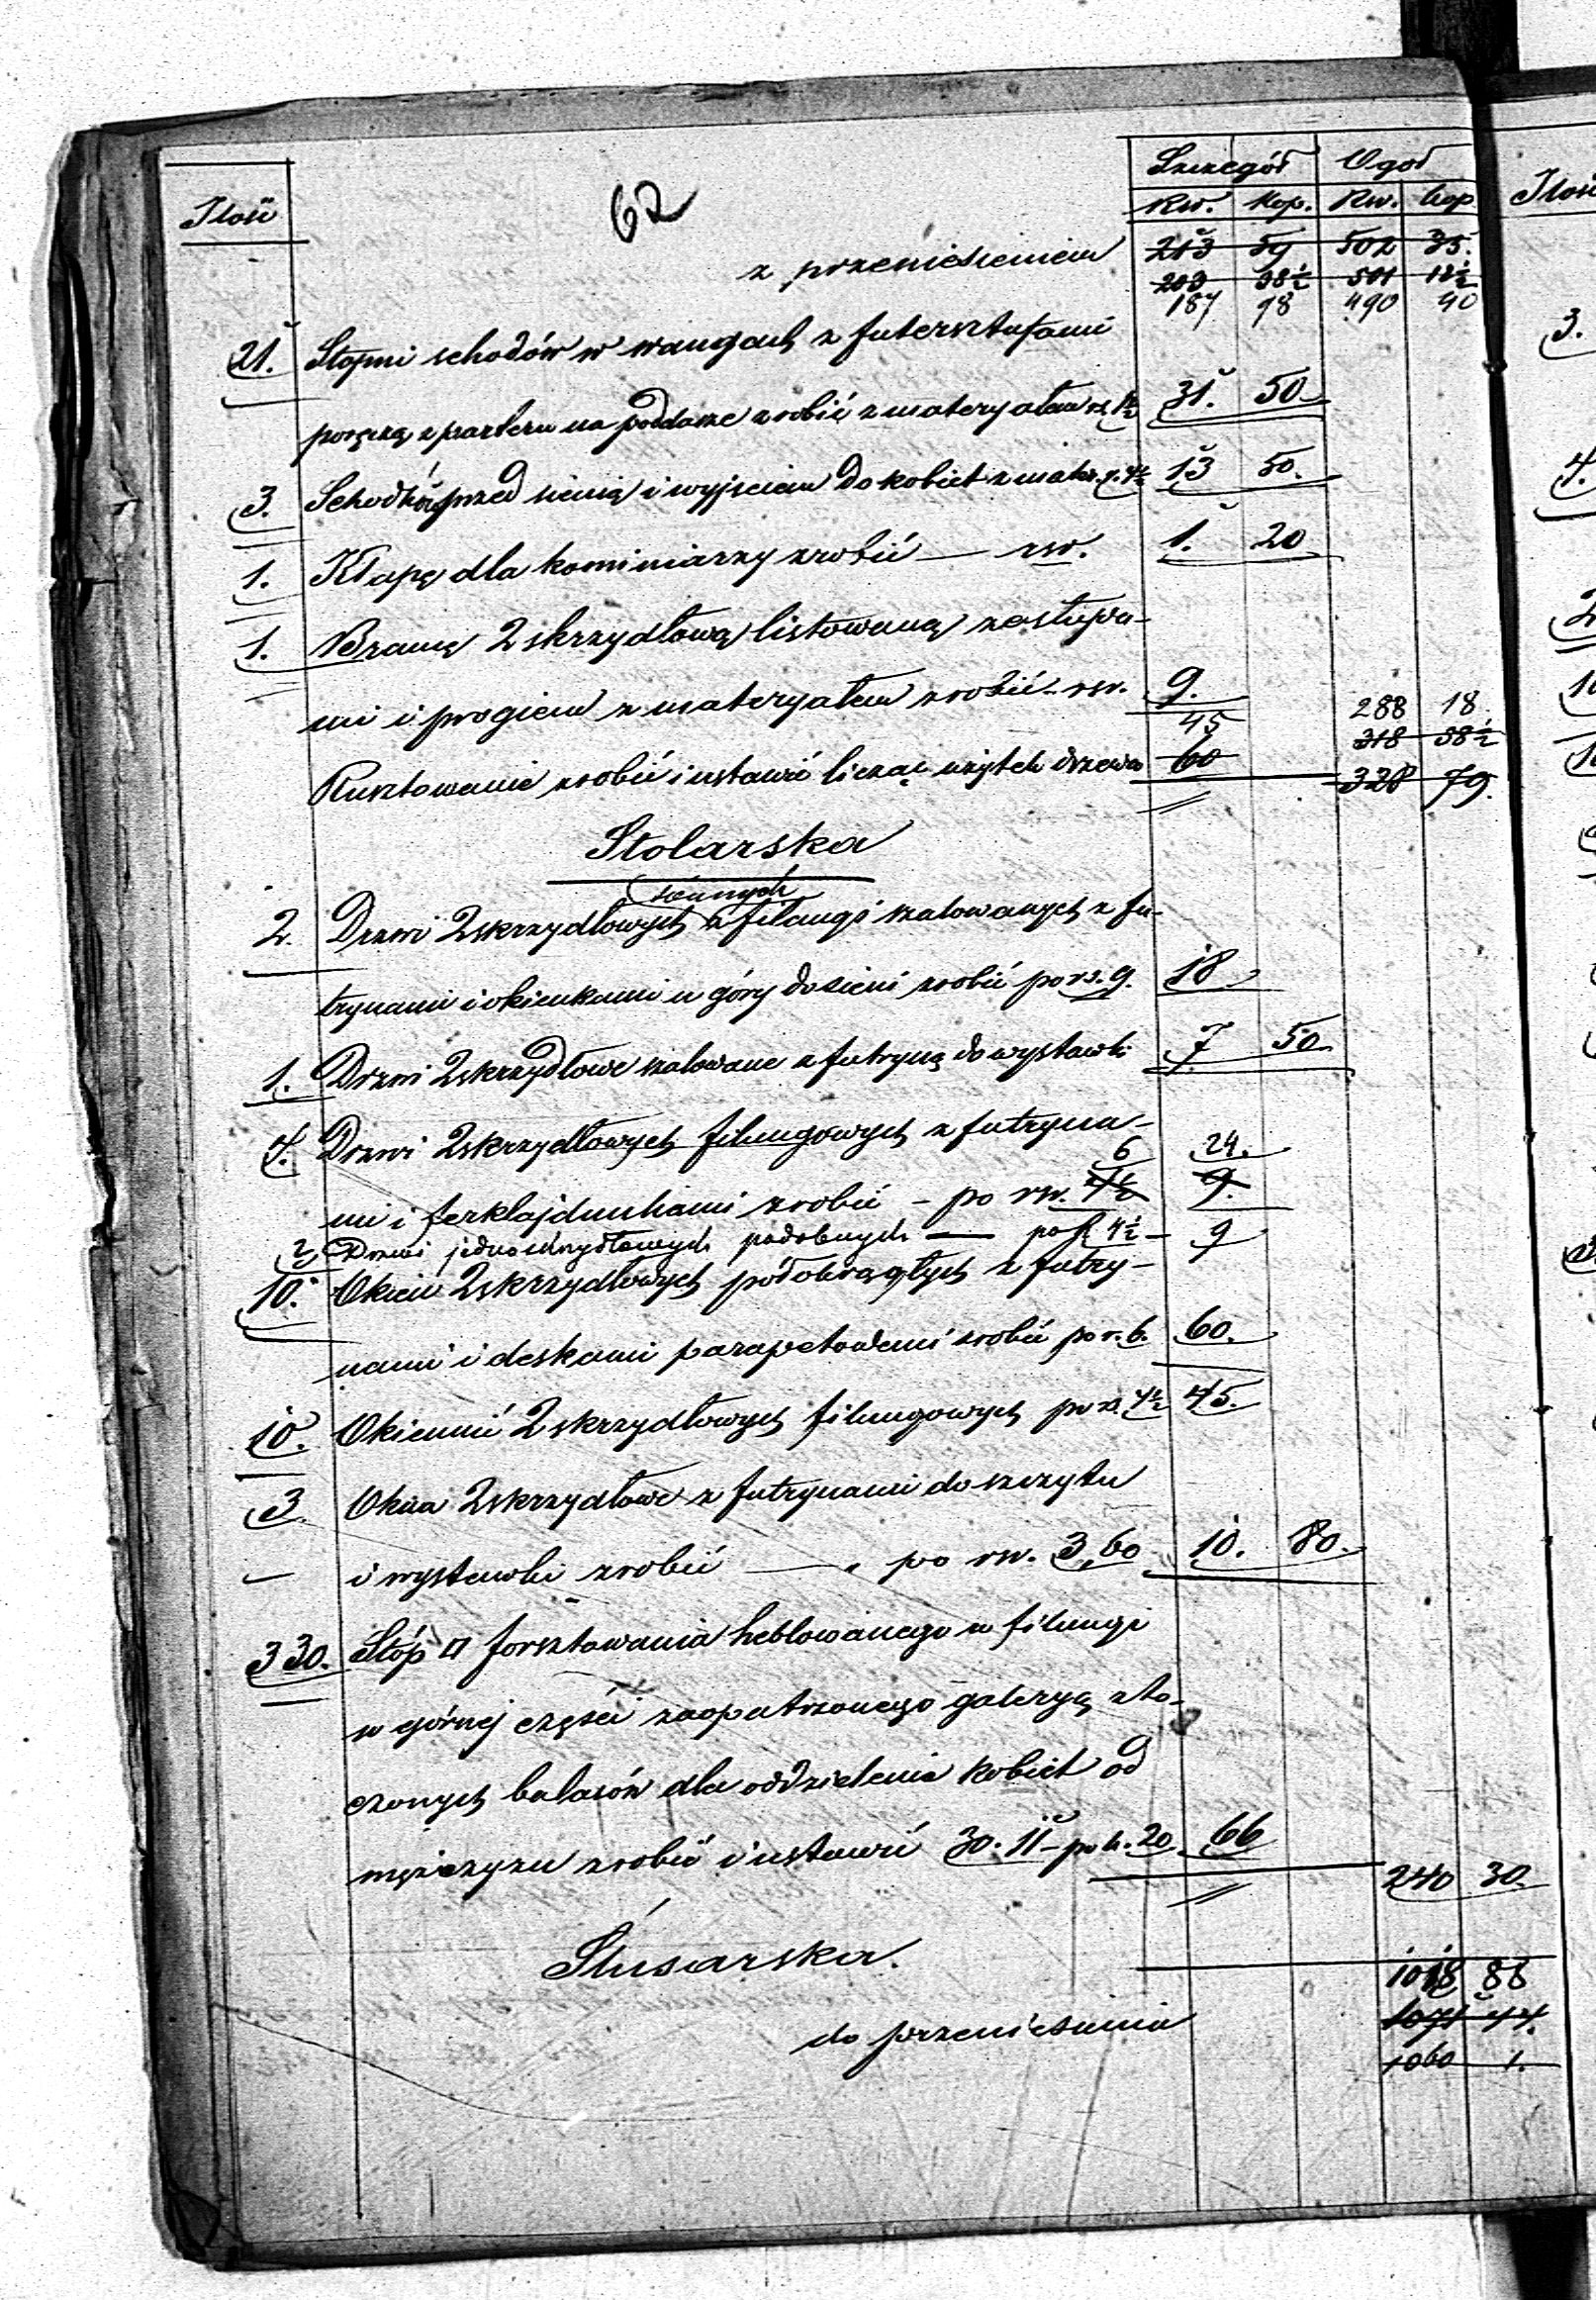 Szczegół Ogoł
Ilość Rsr. Kop. Rsr. Kop.
62
z przeniesienia 213 59 502 35
203 38½ 501 12½
187 98 490 40
21. Stopni schodów w wangach z futersztufami
poręczą z parteru na poddasze zrobić z materyałem rs. 1½ 31. 50
3. Schodków przed sienią i wyjściem do kobiet z mater. r. 4½ 13 50.
1. Klapę dla kominiarzy zrobić — rsr. 1. 20
1. Bramę 2 skrzydłową listowaną z słupa-
mi i progiem z materyałem zrobić - rsr. 9.
45 288 18
318 58½
Rusztowanie zrobić i ustawić licząc użytek drzewa 60 328 79.
Stolarska
ściennych
2. Drzwi 2skrzydłowych szalowanych z fu-
trynami i okienkami u góry do sieni zrobić po rs. 9. 18
1. Drzwi 2skrzydłowe szalowane z futryną do wystawki 7 50
4. Drzwi 2skrzydłowych filungowych z futryna-
6 24.
mi i ferklajdunkami zrobić - po rsr. 4½ 9.
2 Drzwi jednoskrzydłowych podobnych — po R. 4½ - 9
10. Okien 2skrzydłowych półokrągłych z futry-
nami i deskami parapetowemi zrobić po r. 6. 60.
10. Okiennic 2 skrzydłowych filungowych po rs. 4½ 45.
3. Okna 2skrzydłowe z futrynami do szczytu
i wystawki zrobić — " po rsr. 3,60 10. 80.
330. Stóp □ forsztowania heblowanego w filungi
w górnej części zaopatrzonego galeryą z to-
czonych balasów dla oddzielenia kobiet od
mężczyzn zrobić i ustawić 30. 11 - po k. 20 66
240 30
Ślusarska.
1018 88
do przeniesienia 1071 44.
1060 1.
Ilość
3.
4.